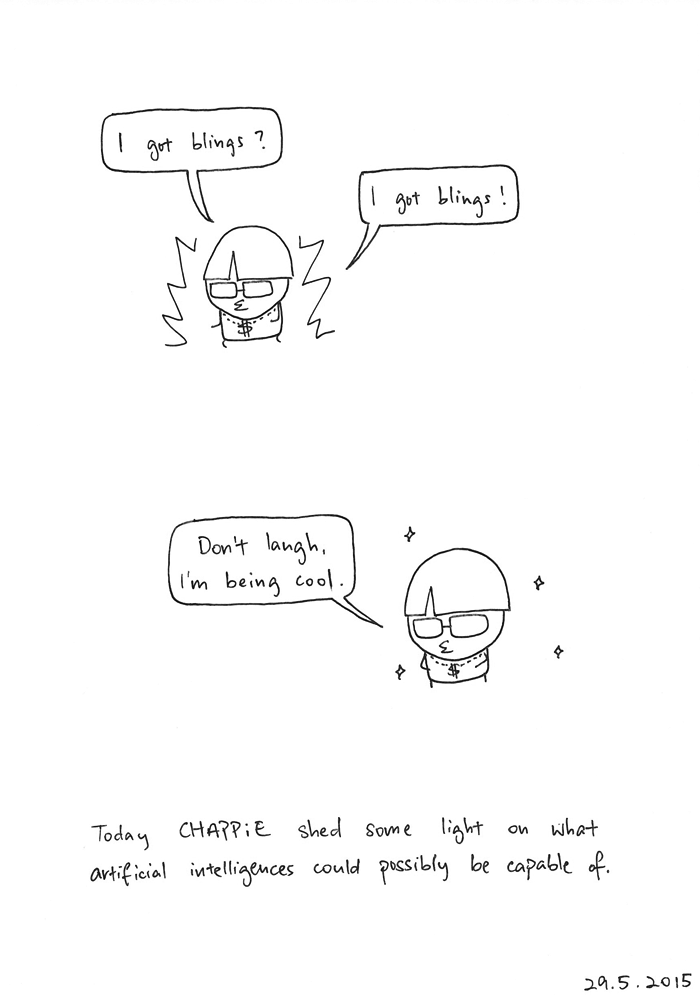 I got blings?
I got blings!
$
Don't laugh,
I'm being cool.
$
Today CHAPPiE shed some light on what
artificial intelligences could possibly be capable of.
29.5.2015